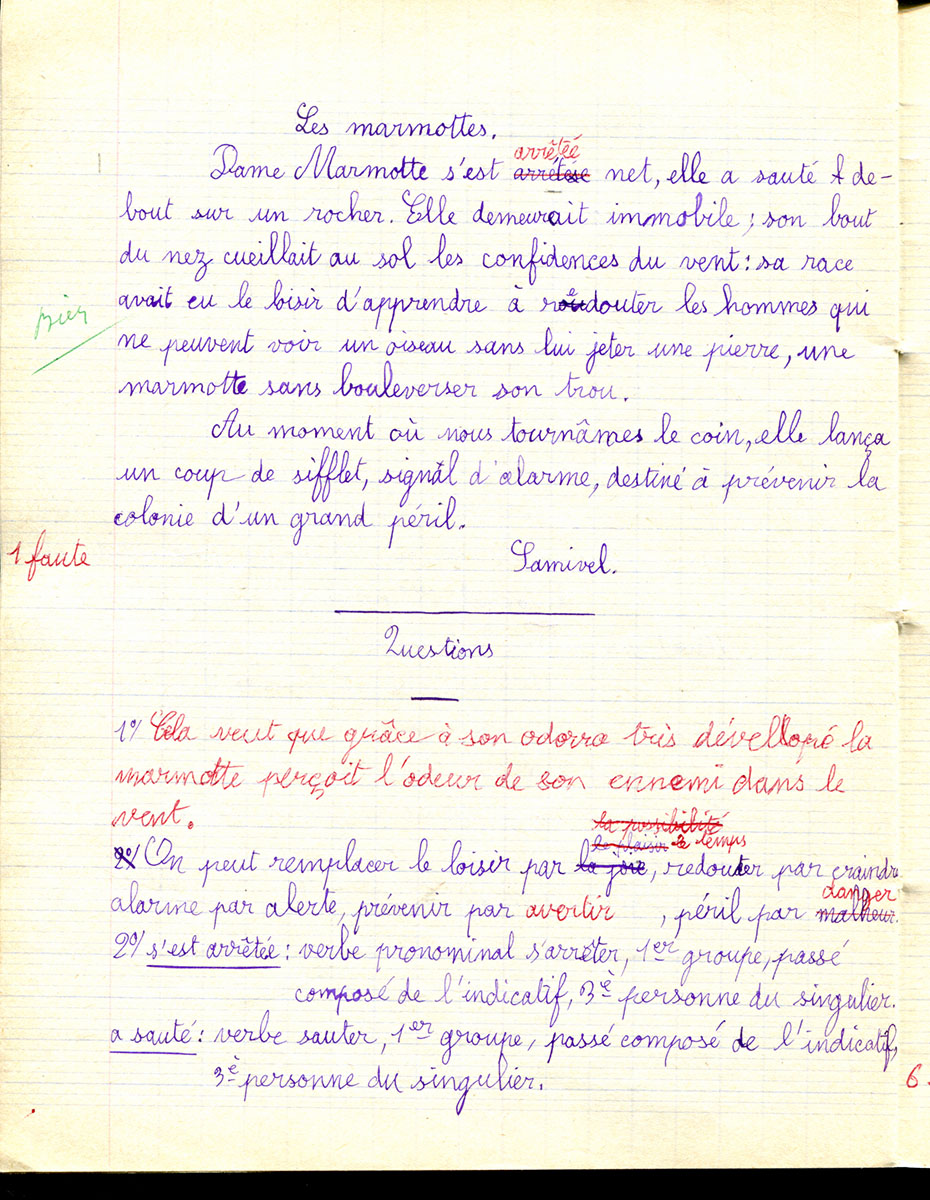 Les marmottes.
arrêtée
Dame Marmotte s'est arrêtese net, elle a sauté de-
bout sur un rocher. Elle demeurait immobile ; son bout
du nez cueillait au sol les confidences du vent : sa race
avait eu le loisir d'apprendre à redouter les hommes qui
ne peuvent voir un oiseau sans lui jeter une pierre, une
marmotte sans bouleverser son trou.
Au moment où nous tournâmes le coin, elle lança
un coup de sifflet, signal d'alarme, destiné à prévenir la
colonie d'un grand péril.
1 faute
Samivel.
Questions
1°/ Cela veut que grâce à son odorra très dévellopé la
marmotte perçoit l'odeur de son ennemi dans le
vent.
la possibilité
le plaisir le temps
2°/ On peut remplacer le loisir par la joie, redouter par craindre
danger
alarme par alerte, prévenir par avertir , péril par malheur.
2°/ s'est arrêtée : verbe pronominal s'arrêter, 1er groupe, passé
composé de l'indicatif, 3è personne du singulier.
a sauté : verbe sauter, 1er groupe, passé composé de l'indicatif,
3è personne du singulier.
6.